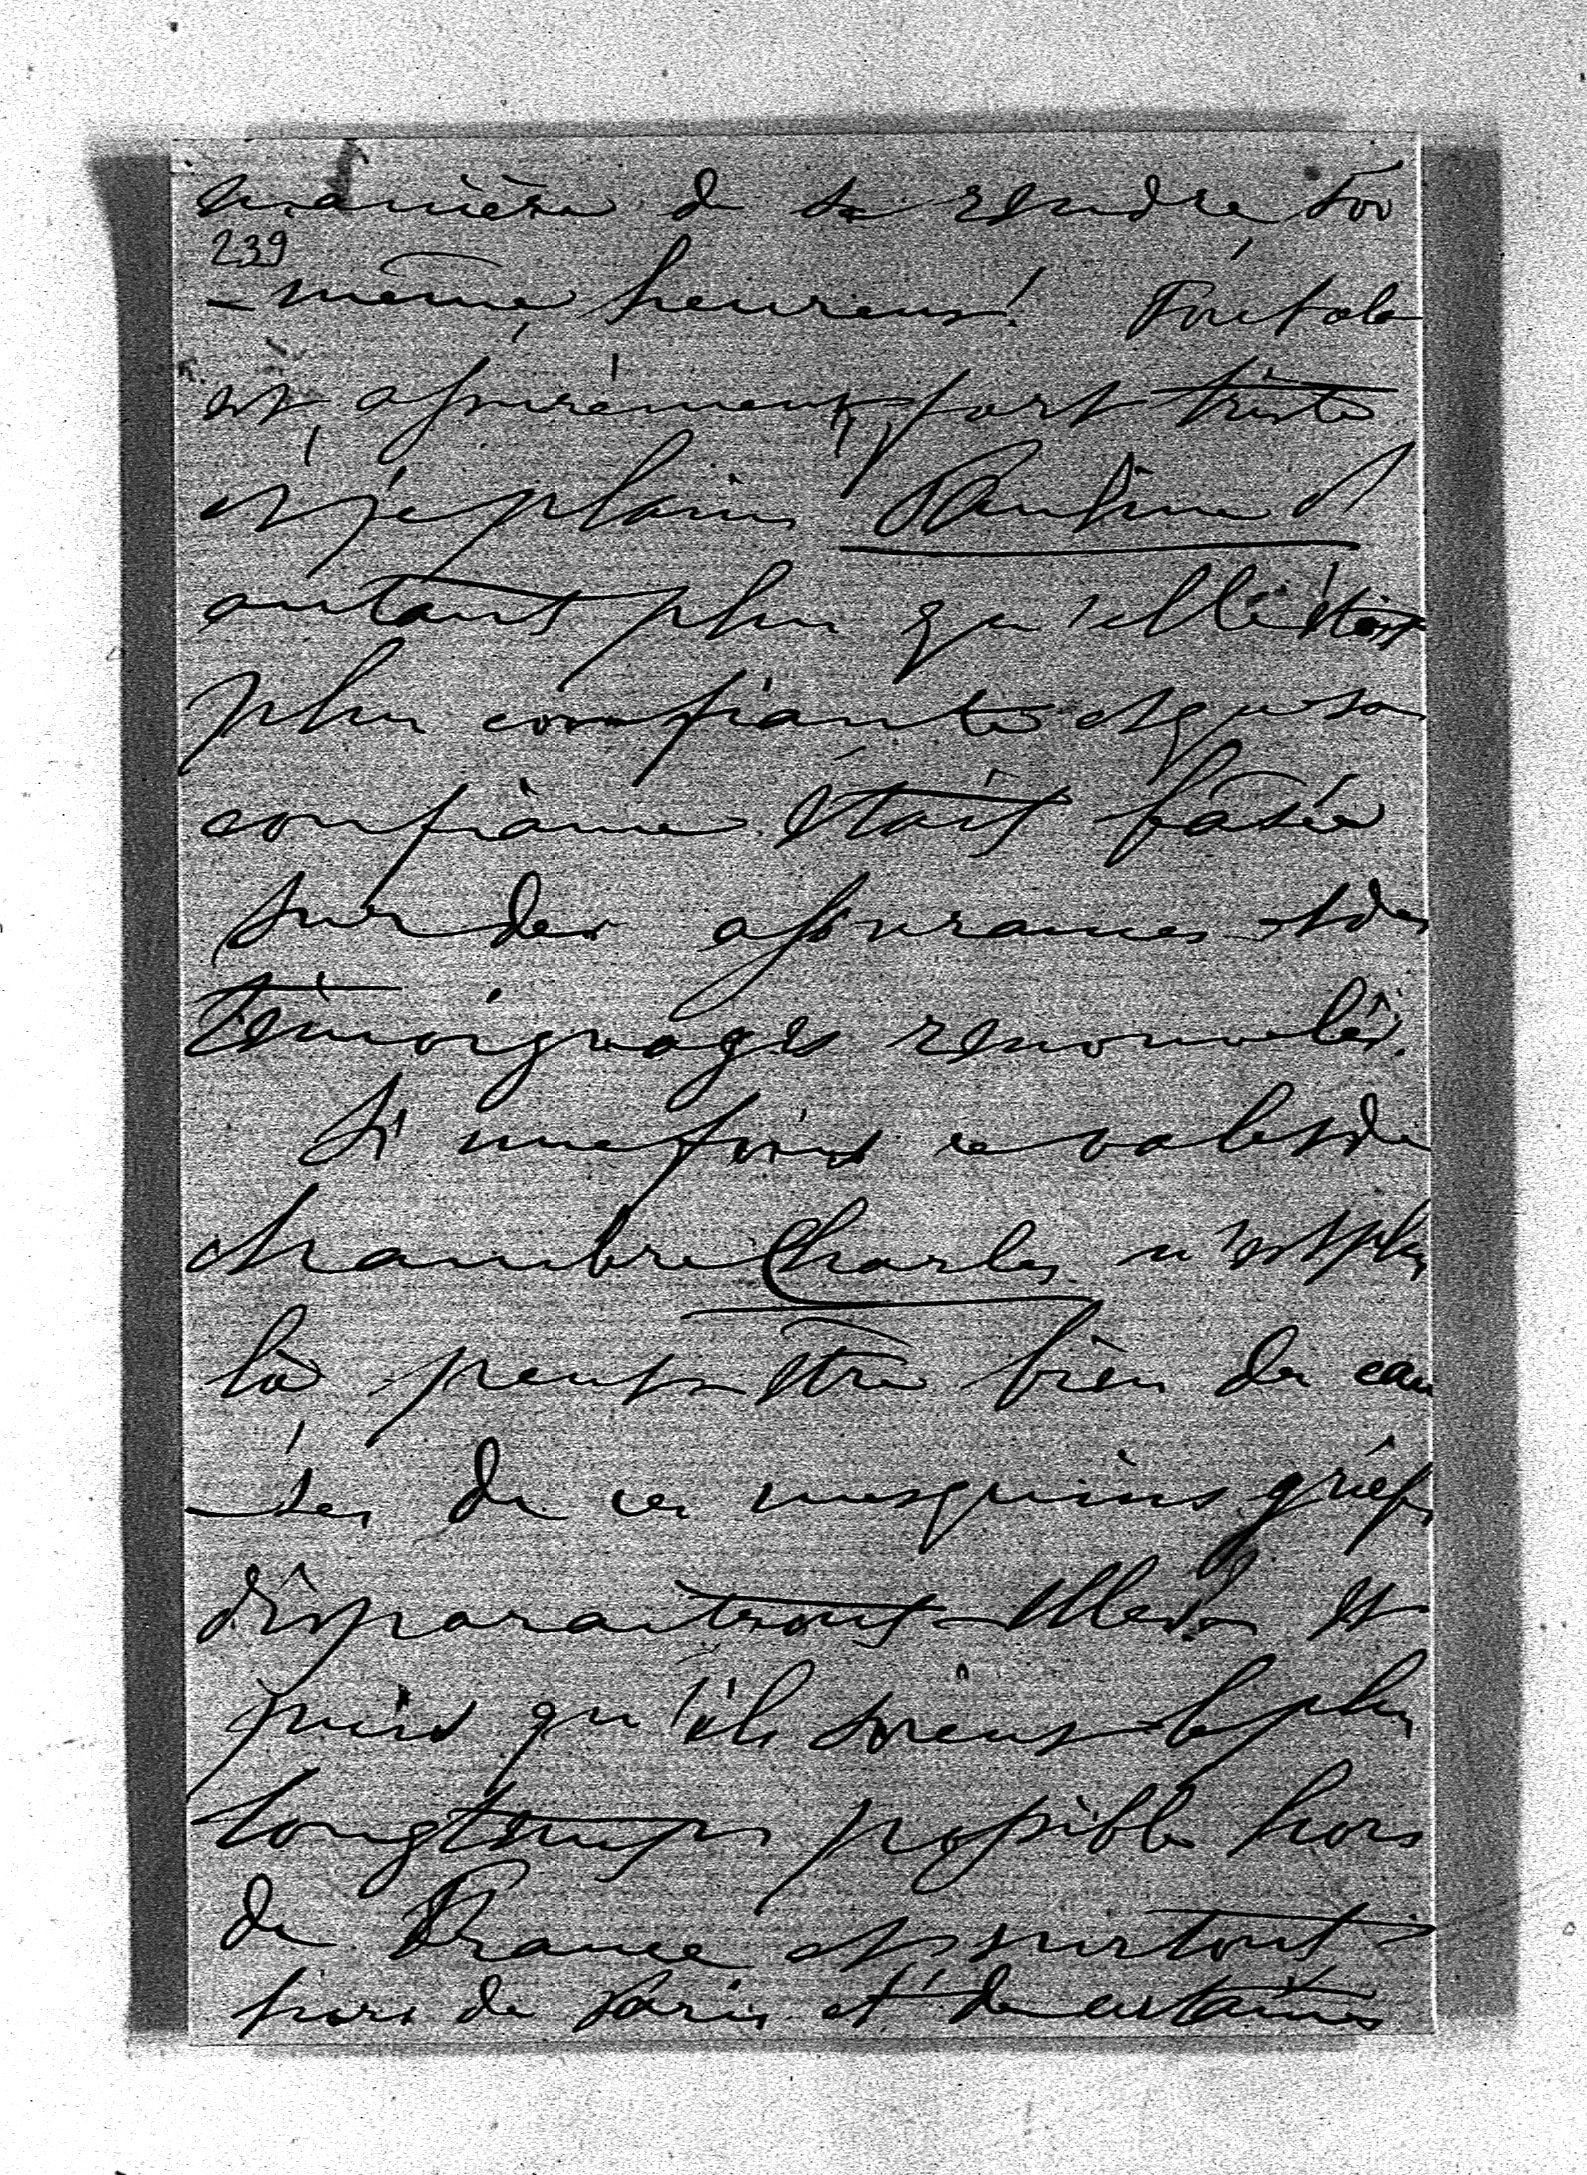 manière de se rendre soi
239
-même heureux! Tout cela
est assurément fort triste
et je plains Pauline d'
autant plus qu'elle était
plus confiante et que sa
confiance était basée
sur des assurances et des
témoignages renouvelés.
Si une fois ce valet de
chambre Charles n'est plus
là peut-être bien des cau
-ses de ces mesquins griefs
disparaitront-elles. Et
puis qu'ils soient le plus
longtemps possible hors
de France et surtout
hors de Paris et de certaines